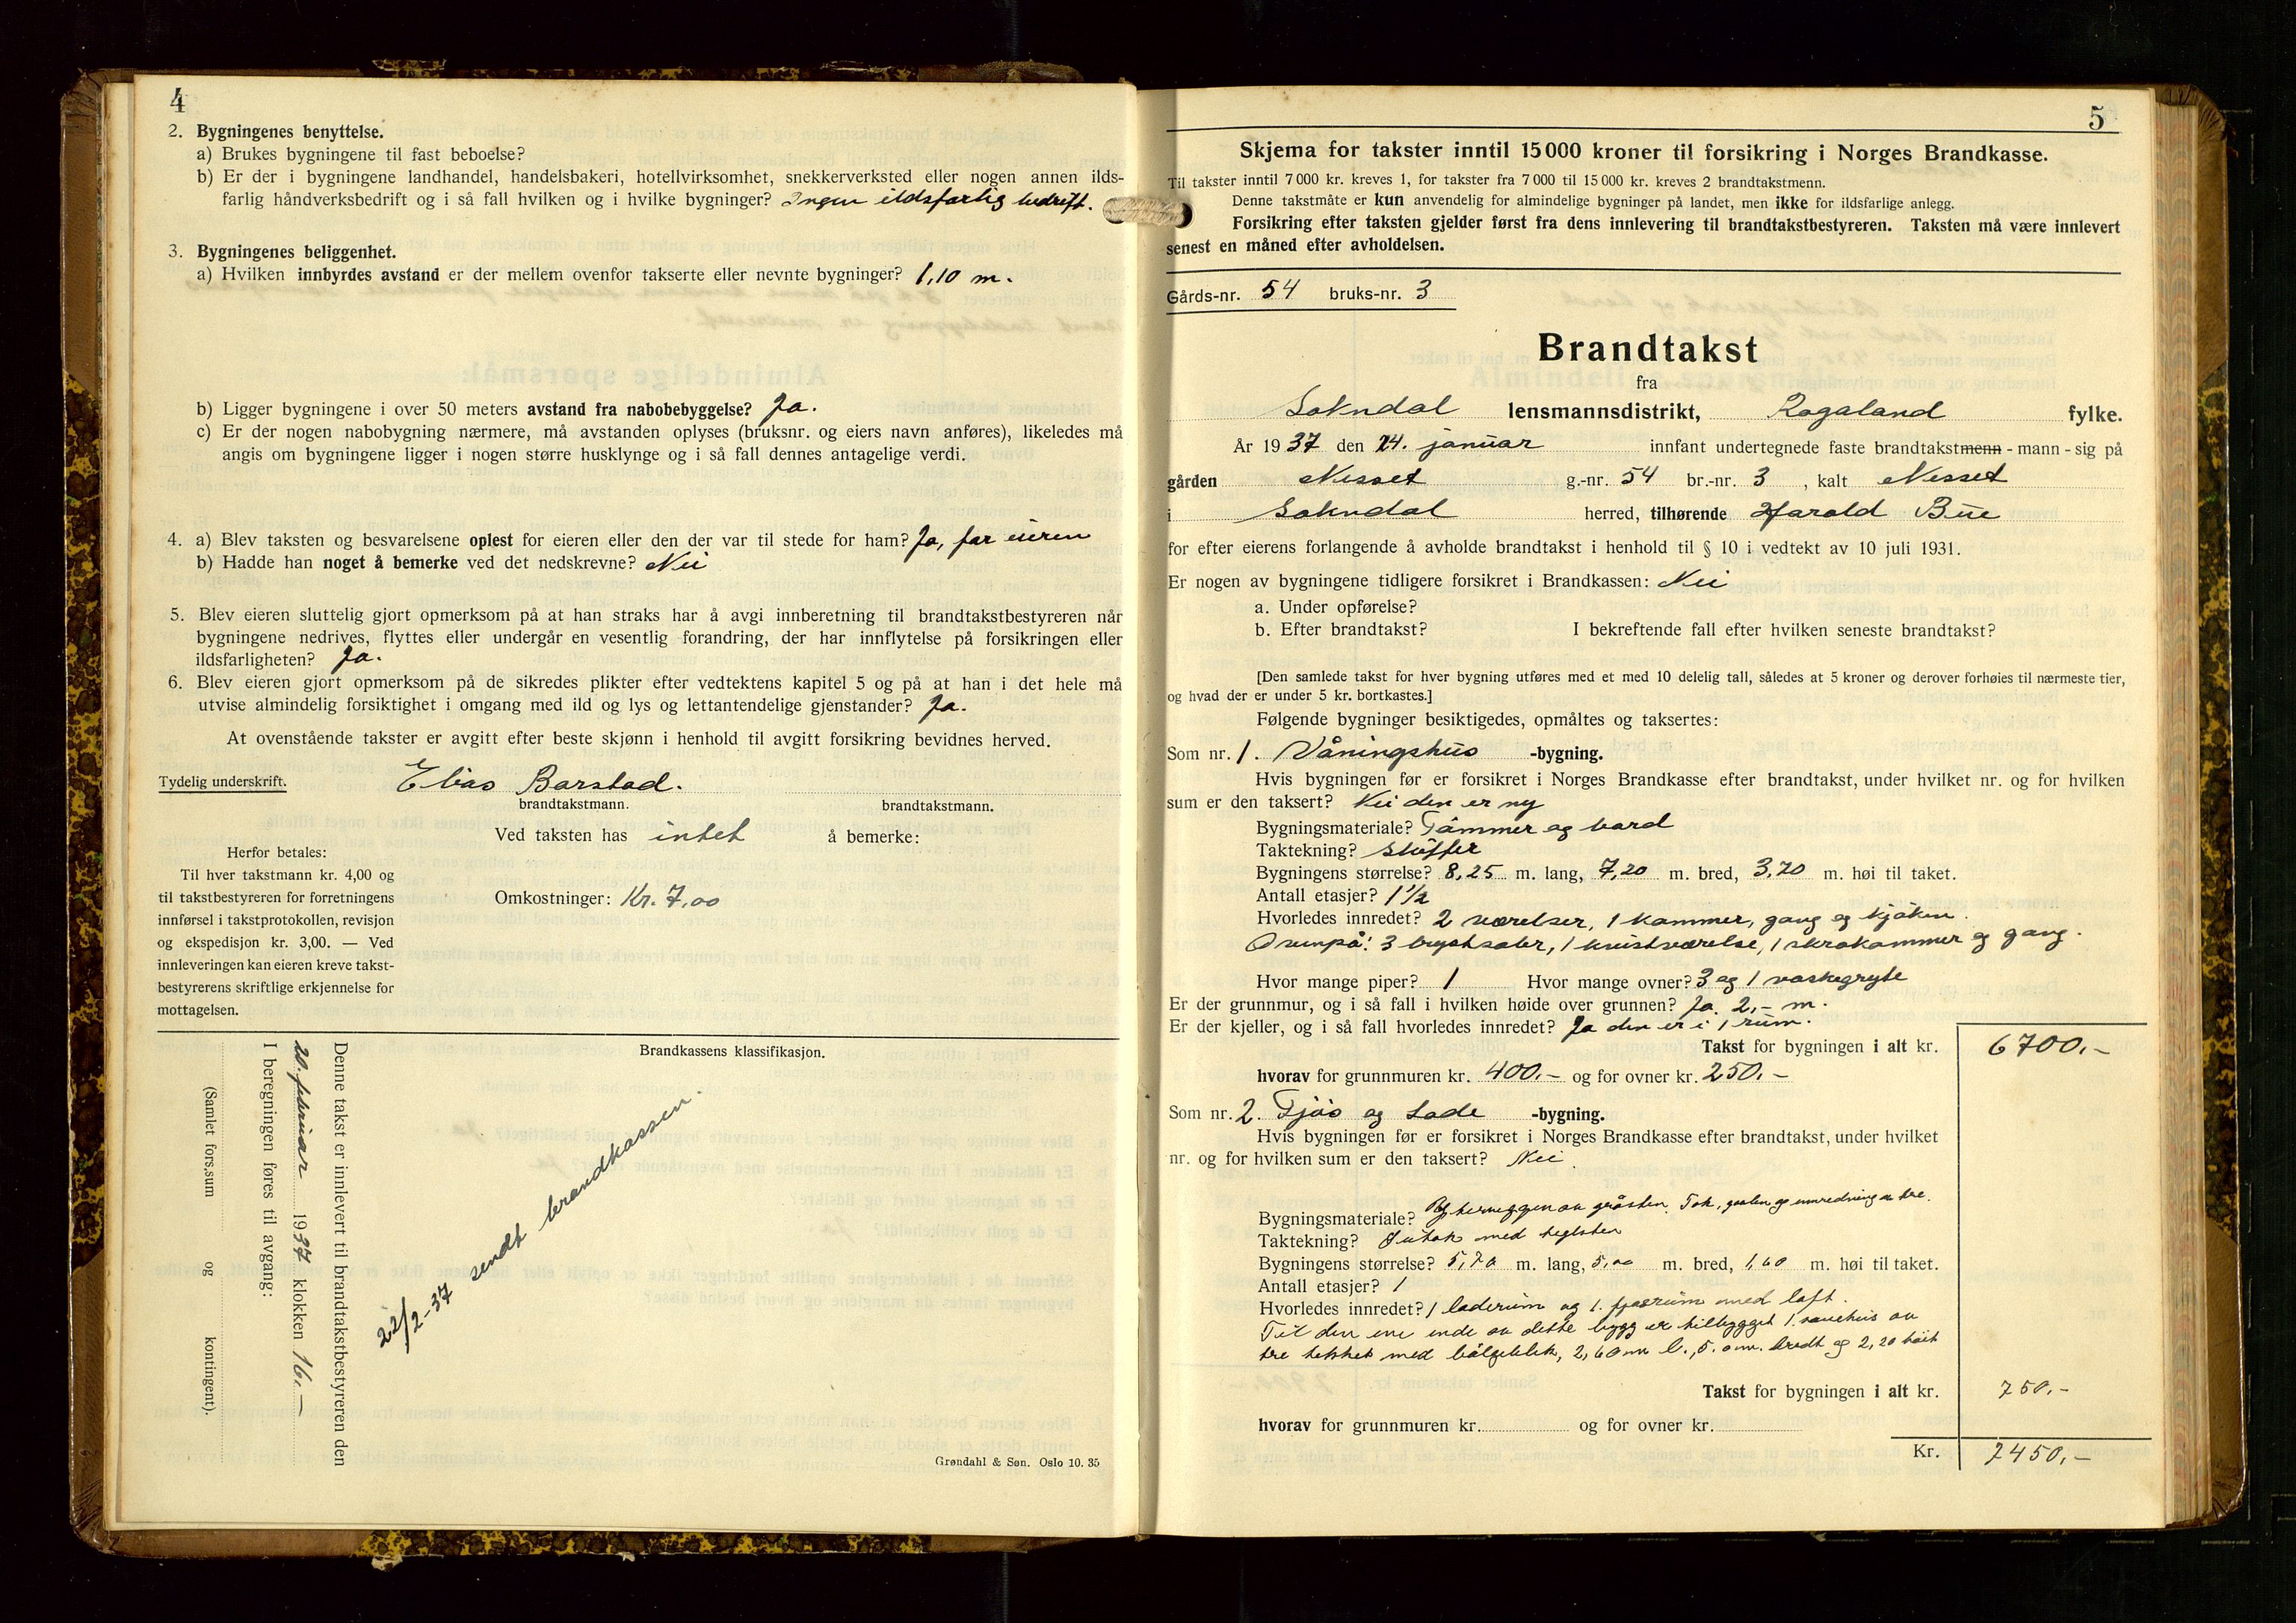 4
2. Bygningenes benyttelse.
a) Brukes bygningene til fast beboelse?
b) Er der i bygningene landhandel, handelsbakeri, hotellvirksomhet, snekkerverksted eller nogen annen ilds-
farlig håndverksbedrift og i så fall hvilken og i hvilke bygninger? Ingen ildsfarlig bedrift.
3. Bygningenes beliggenhet.
a) Hvilken innbyrdes avstand er der mellem ovenfor takserte eller nevnte bygninger? 1,10 m.
b) Ligger bygningene i over 50 meters avstand fra nabobebyggelse? Ja.
c) Er der nogen nabobygning nærmere, må avstanden oplyses (bruksnr. og eiers navn anføres), likeledes må
angis om bygningene ligger i nogen større husklynge og i så fall dennes antagelige verdi.
4. a) Blev taksten og besvarelsene oplest for eieren eller den der var til stede for ham? Ja, for eieren
b) Hadde han noget å bemerke ved det nedskrevne? Nei
5. Blev eieren sluttelig gjort opmerksom på at han straks har å avgi innberetning til brandtakstbestyreren når
bygningene nedrives, flyttes eller undergår en vesentlig forandring, der har innflytelse på forsikringen eller
ildsfarligheten? Ja.
6. Blev eieren gjort opmerksom på de sikredes plikter efter vedtektens kapitel 5 og på at han i det hele må
utvise almindelig forsiktighet i omgang med ild og lys og lettantendelige gjenstander? Ja.
At ovenstående takster er avgitt efter beste skjønn i henhold til avgitt forsikring bevidnes herved.
Tydelig underskrift. Elias Barstad.
brandtakstmann. brandtakstmann.
Ved taksten has intet å bemerke:
Herfor betales:
Til hver takstmann kr. 4,00 og
til takstbestyreren for forretningens
innførsel i takstprotokollen, revisjon
og ekspedisjon kr. 3,00. — Ved
innleveringen kan eieren kreve takst-
bestyrerens skriftlige erkjennelse for
mottagelsen.
Omkostninger: Kr. 7,00
Brandkassens klassifikasjon.
Denne takst er innlevert til brandtakstbestyreren den
20. februar 1937 klokken 16.—
I beregningen føres til avgang:
(Samlet fors.sum og kontingent).
22/2-37 sendt brandkassen.
Grøndahl & Søn. Oslo 10. 35
5
Skjema for takster inntil 15000 kroner til forsikring i Norges Brandkasse.
Til takster inntil 7 000 kr. kreves 1, for takster fra 7 000 til 15 000 kr. kreves 2 brandtakstmenn.
Denne takstmåte er kun anvendelig for almindelige bygninger på landet, men ikke for ildsfarlige anlegg.
Forsikring efter taksten gjelder først fra dens innlevering til brandtakstbestyreren. Taksten må være innlevert
senest en måned efter avholdelsen.
Gårds-nr. 54 bruks-nr. 3
Brandtakst
fra
Sokndal lensmannsdistrikt, Rogaland fylke.
År 1937 den 24. januar innfant undertegnede faste brandtakstmenn - mann - sig på
gården Nesset g.-nr. 54 br.-nr. 3, kalt Nesset
i Sokndal herred, tilhørende Harald Bue
for efter eierens forlangende å avholde brandtakst i henhold til § 10 i vedtekt av 10 juli 1931.
Er nogen av bygningene tidligere forsikret i Brandkassen: Nei
a. Under opførelse?
b. Efter brandtakst? I bekreftende fall efter hvilken seneste brandtakst?
[Den samlede takst for hver bygning utføres med et med 10 delelig tall, således at 5 kroner og derover forhøies til nærmeste tier,
og hvad der er under 5 kr. bortkastes.]
Følgende bygninger besiktigedes, opmåltes og taksertes:
Som nr. 1. Våningshus -bygning.
Hvis bygningen før er forsikret i Norges Brandkasse efter brandtakst, under hvilket nr. og for hvilken
sum er den taksert? Nei den er ny
Bygningsmateriale? Tømmer og bord
Taktekning? Skiffer
Bygningens størrelse? 8,25 m. lang, 7,20 m. bred, 3,70 m. høi til taket.
Antall etasjer? 1½
Hvorledes innredet? 2 værelser, 1 kammer, gang og kjøken.
Ovenpå: 3 brystsaler, 1 kvistværelse, 1 skrakammer og gang.
Hvor mange piper? 1 Hvor mange ovner? 3 og 1 vaskegryte
Er der grunnmur, og i så fall i hvilken høide over grunnen? Ja. 2,- m.
Er der kjeller, og i så fall hvorledes innredet? Ja den er i 1 rum.
Takst for bygningen i alt kr. 6700.-
hvorav for grunnmuren kr. 400.- og for ovner kr. 250.-
Som nr. 2. Fjøs og Lade -bygning.
Hvis bygningen før er forsikret i Norges Brandkasse efter brandtakst, under hvilket
nr. og for hvilken sum er den taksert? Nei.
Bygningsmateriale? av gråsten. Tak, og innredning av tre.
Taktekning? Sutak med teglsten
Bygningens størrelse? 5,70 m. lang, 5,00 m. bred, 1,60 m. høi til taket.
Antall etasjer? 1
Hvorledes innredet? 1 laderum og 1. fjøsrum med loft.
Til den ene ende av dette bygg er tilbygget 1. av
tre tekket med bølgeblik, 2,60 m l., 5.0 m. bredt og 2,20 høit
Takst for bygningen i alt kr. 750.-
hvorav for grunnmuren kr. og for ovner kr.
Kr. 7450.-